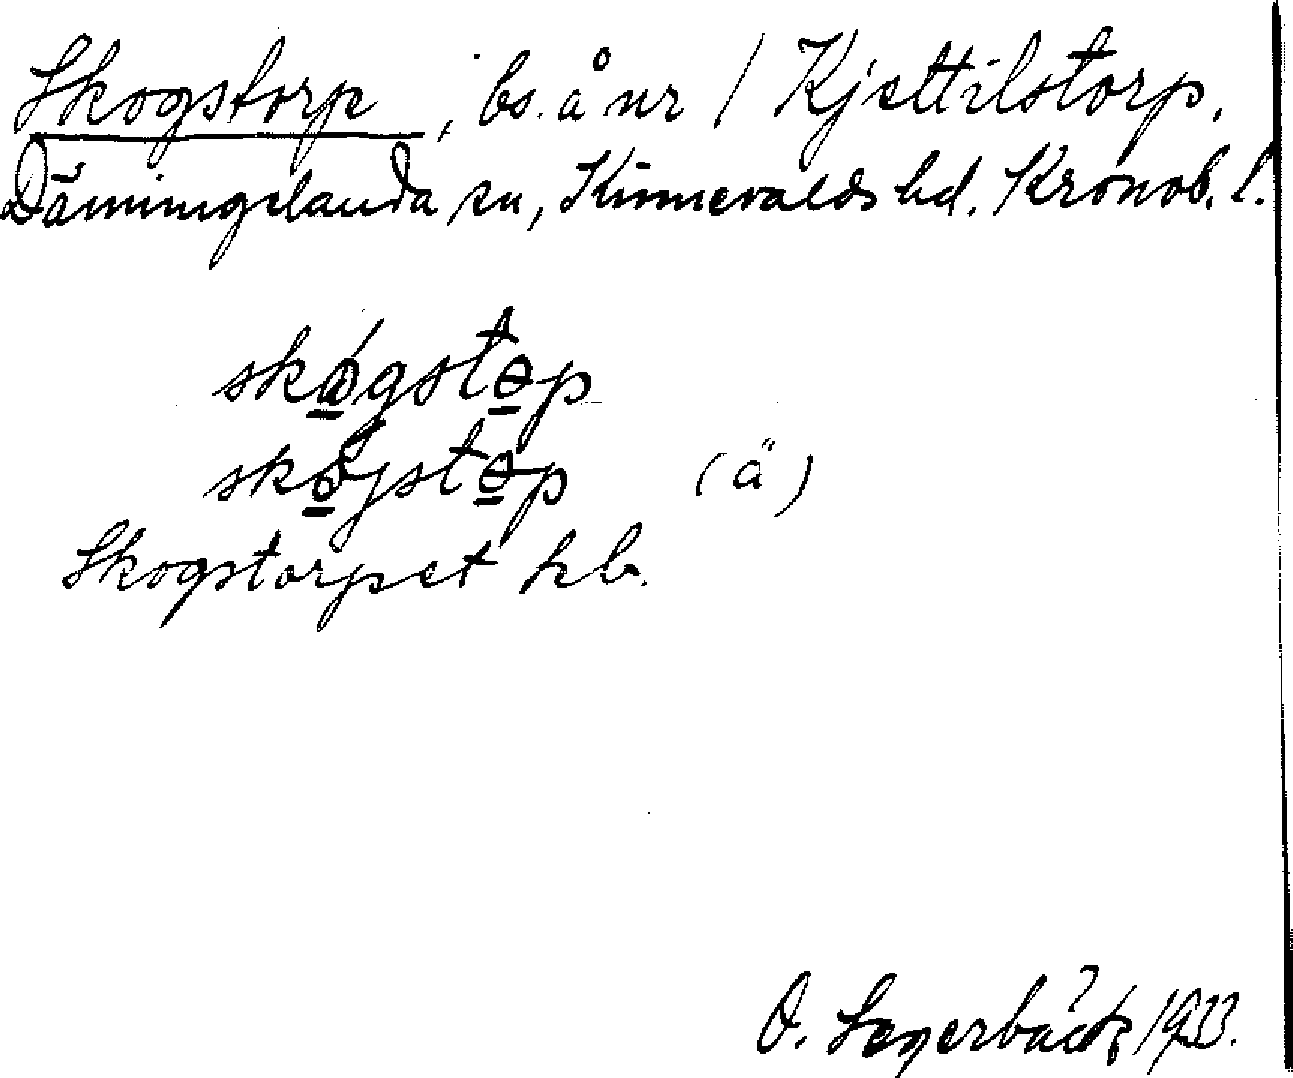 Skogstorp, bs. å nr 1 Kjettilstorp,
Dänningelanda sn, Kinnevalds hd. Kronob. l.
skógstop
skøjstop (ä)
Skogstorpet kb.
O. Segerbäck 1933.